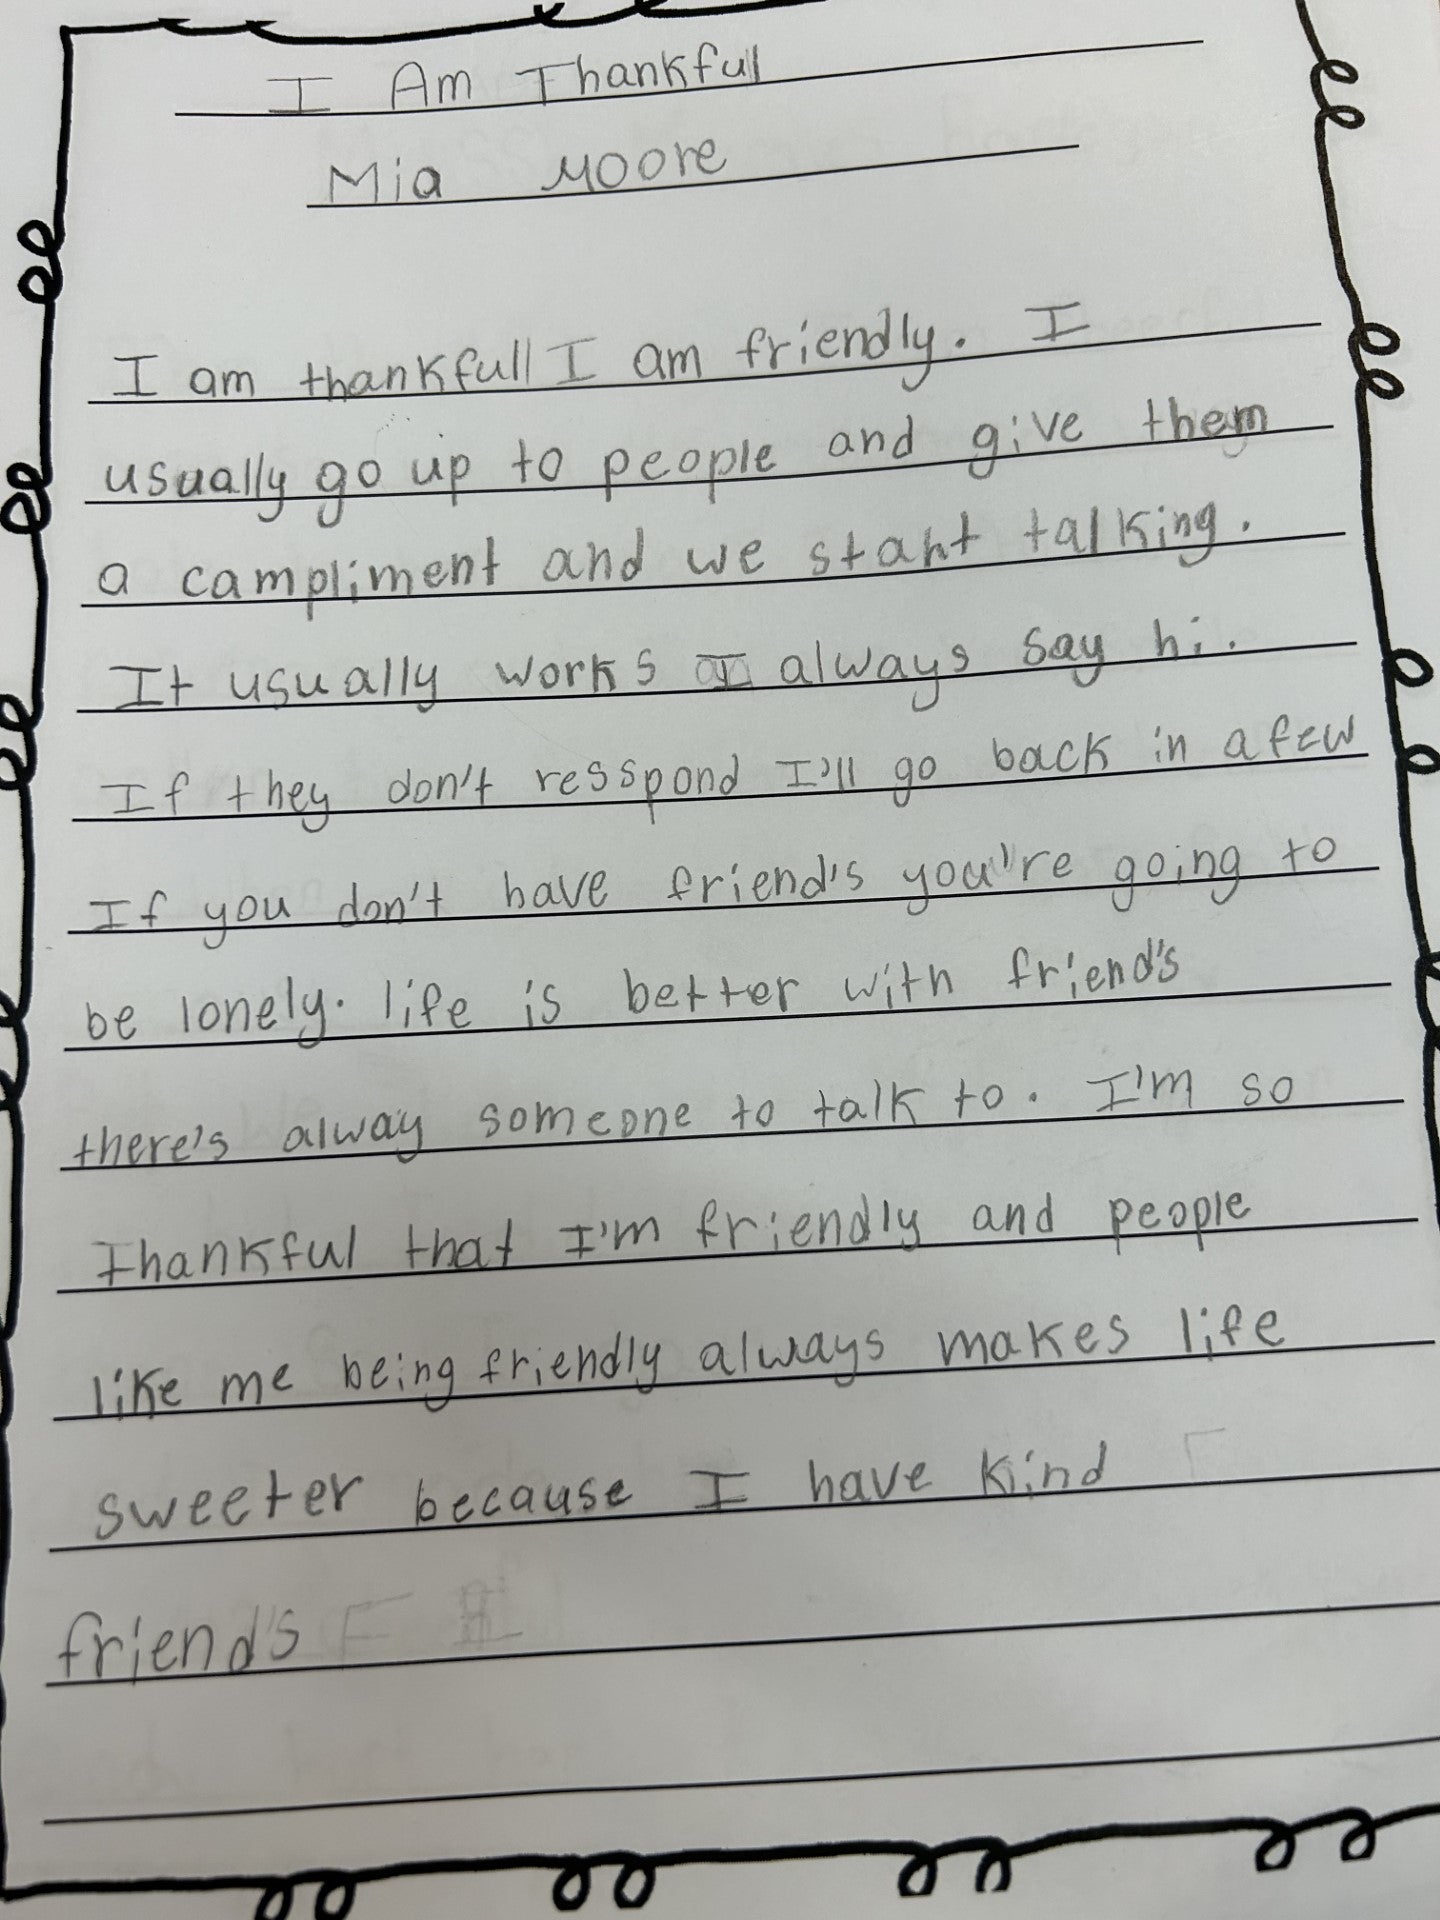 I Am Thankful
Mia Moore
I am thankfull I am friendly. I
usually go up to people and give them
a campliment and we start talking.
It usually works I always say hi.
If they don't resspond I'll go back in a few
If you don't have friend's you're going to
be lonely. life is better with friend's
there's alway someone to talk to. I'm so
thankful that I'm friendly and people
like me being friendly always makes life
sweeter because I have kind
friend's